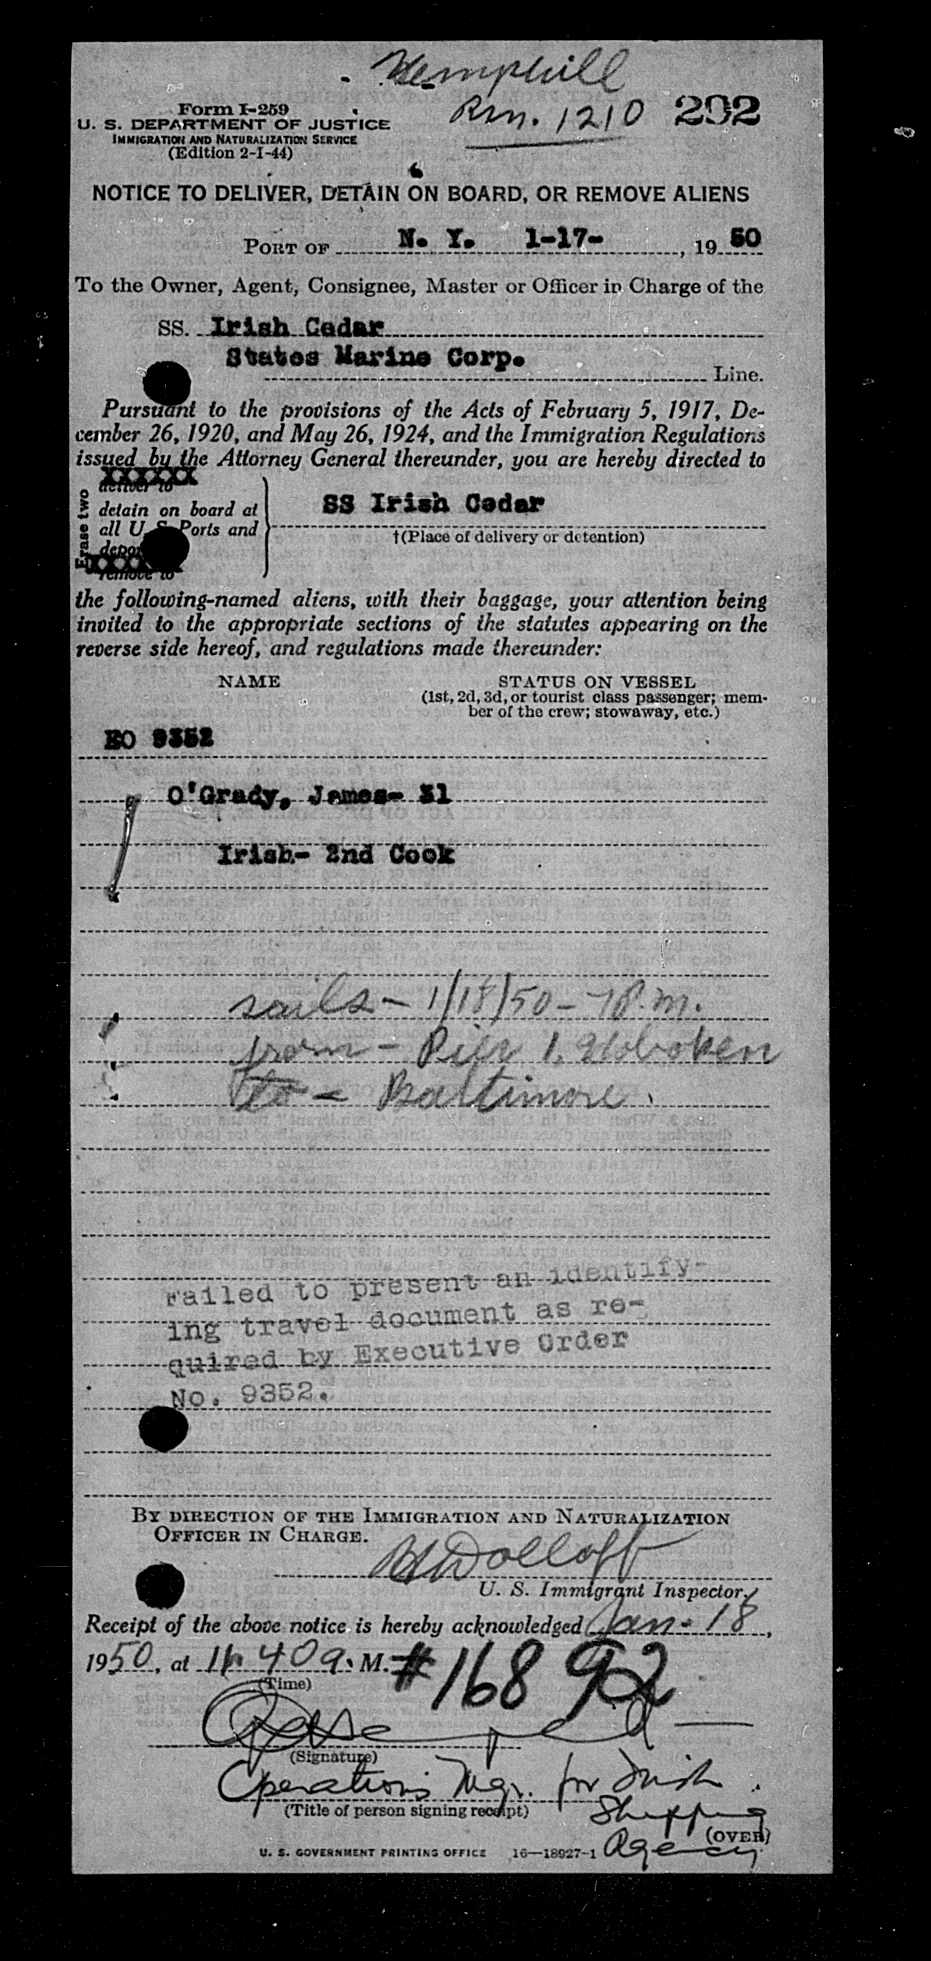 Hemphill
Rm. 1210 292
Form I-259
U. S. DEPARTMENT OF JUSTICE
IMMIGRATION AND NATURALIZATION SERVICE
(Edition 2-1-44)
NOTICE TO DELIVER, DETAIN ON BOARD, OR REMOVE ALIENS
PORT OF N. Y. 1-17- , 19 50
To the Owner, Agent, Consignee, Master or Officer in Charge of the
SS. Irish Cedar
States Marine Corp.
Line.
Pursuant to the provisions of the Acts of February 5, 1917, De-
cember 26, 1920, and May 26, 1924, and the Immigration Regulations
issued by the Attorney General thereunder, you are hereby directed to
Erase two
deliver to
detain on board at
all U. S. Ports and
remove to
SS Irish Cedar
†(Place of delivery or detention)
the following-named aliens, with their baggage, your attention being
invited to the appropriate sections of the statutes appearing on the
reverse side hereof, and regulations made thereunder:
NAME STATUS ON VESSEL
(1st, 2d, 3d, or tourist class passenger; mem-
ber of the crew; stowaway, etc.)
EO 9352
O'Grady, James- 31
Irish- 2nd Cook
sails - 1/18/50 - 7 P.m.
from - Pier 1, Hoboken
to - Baltimore.
Failed to present an identify-
ing travel document as re-
quired by Executive Order
No. 9352.
BY DIRECTION OF THE IMMIGRATION AND NATURALIZATION
OFFICER IN CHARGE.
Dolloff
U. S. Immigrant Inspector.
Receipt of the above notice is hereby acknowledged Jan. 18,
1950, at 11 40 a. M. #16892
(Time)
(Signature)
Operations Mgr. for Irish
(Title of person signing receipt) Shipping
(OVER)
U. S. GOVERNMENT PRINTING OFFICE 16—18927-1 Agency